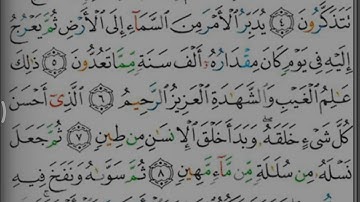 تَتَذَكَّرُونَ ٤ يُدَبِّرُ ٱلْأَمْرَ مِنَ ٱلسَّمَآءِ إِلَى ٱلْأَرْضِ ثُمَّ يَعْرُجُ
إِلَيْهِ فِى يَوْمٍ كَانَ مِقْدَارُهُۥٓ أَلْفَ سَنَةٍ مِّمَّا تَعُدُّونَ ٥ ذَٰلِكَ
عَٰلِمُ ٱلْغَيْبِ وَٱلشَّهَٰدَةِ ٱلْعَزِيزُ ٱلرَّحِيمُ ٦ ٱلَّذِىٓ أَحْسَنَ
كُلَّ شَىْءٍ خَلَقَهُۥ وَبَدَأَ خَلْقَ ٱلْإِنسَٰنِ مِن طِينٍ ٧ ثُمَّ جَعَلَ
نَسْلَهُۥ مِن سُلَٰلَةٍ مِّن مَّآءٍ مَّهِينٍ ٨ ثُمَّ سَوَّىٰهُ وَنَفَخَ فِيهِ